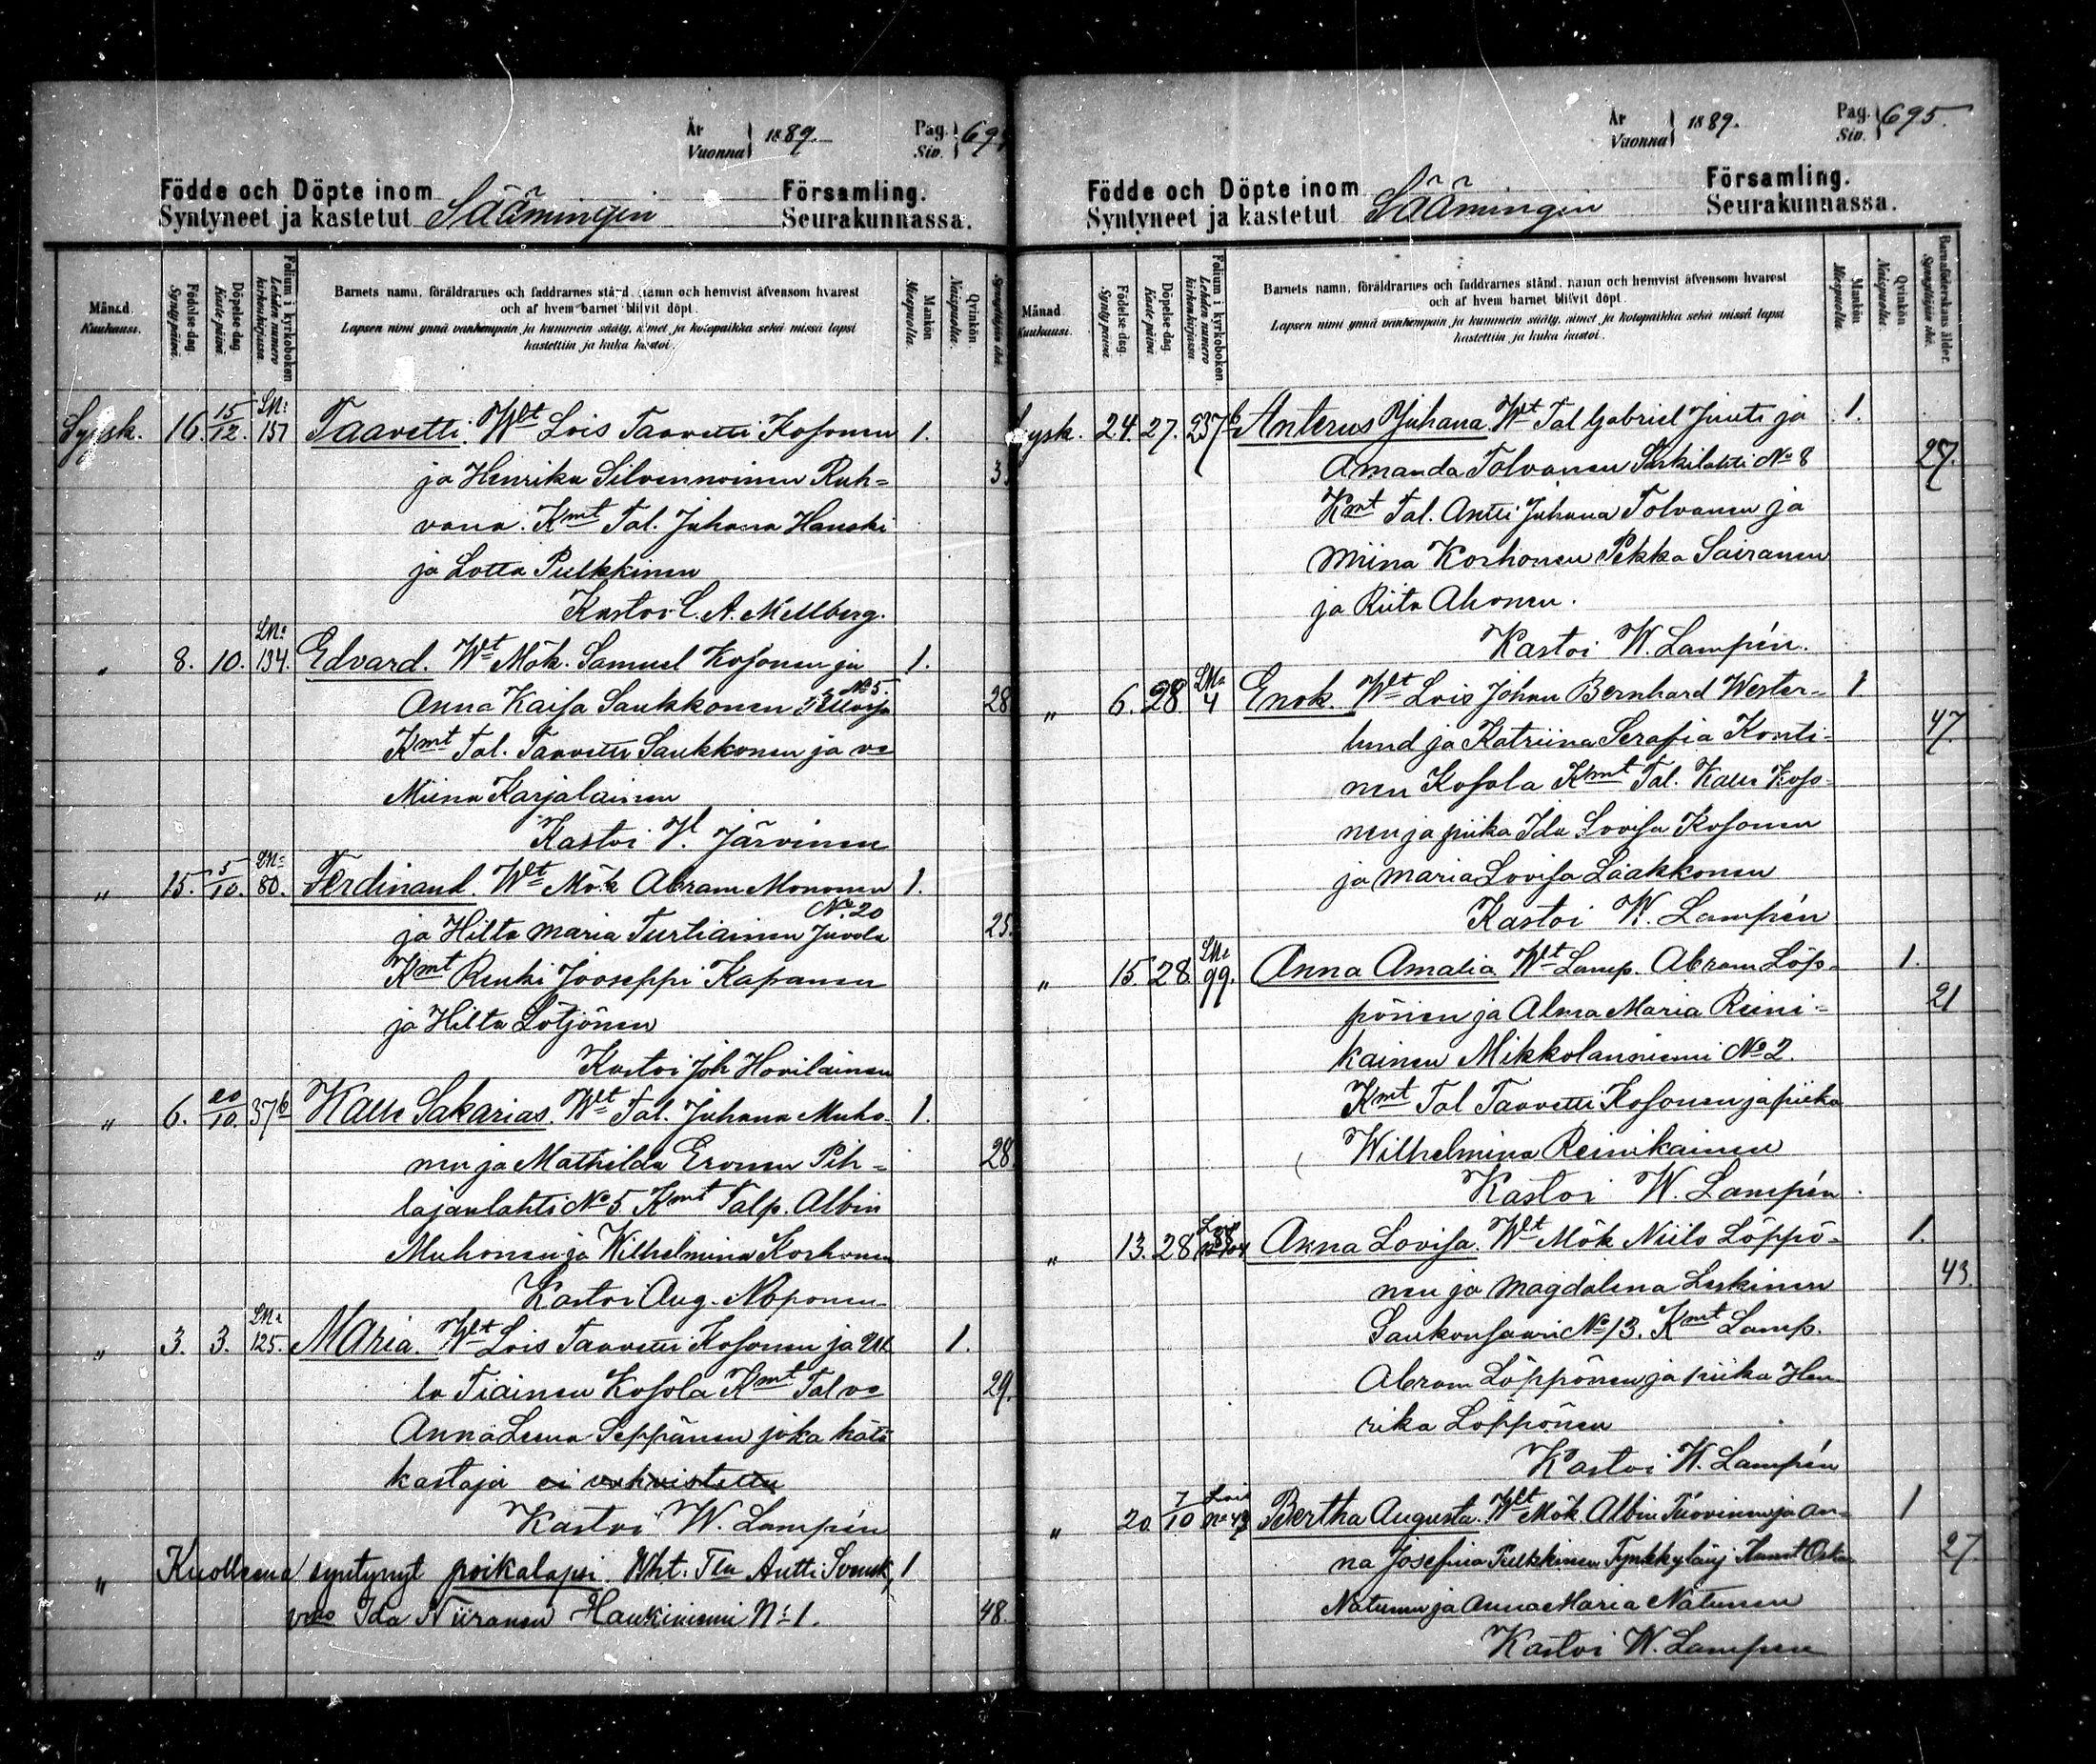 År 1889. Pag. 694
Vuonna Siv.
Födde och Döpte inom Församling.
Syntyneet ja kastetut Säämingin Seurakunnassa.
Månad. Kuukausi.
Födelse-dag. Syntypäivä.
Döpelse-dag. Kaste-päivä.
Folium i kyrkoboken Lehden numero kirkonkirjassa.
Barnets namn, föräldrarnes och faddrarnes stånd, namn och hemvist äfvensom hvarest
och af hvem barnet blifvit döpt.
Lapsen nimi ynnä vanhempain ja kummein sääty, nimet ja kotopaikka sekä missä lapsi
kastettiin ja kuka kastoi.
Mankön Miespuolia.
Qvinkön. Naispuolia.
Synnyttäjän ikä.
Syysk. 16. 15/12. LN: 157 Taavetti. Wlt Lois Taavetti Kosonen 1.
ja Henrika Silvennoinen Ruh= 3
vana. Kmt Tal. Juhana Hanski
ja Lotta Pulkkinen
Kastoi C. A. Mellberg.
" 8. 10. LN: 134. Edvard. Wlt Mök. Samuel Kosonen ja 1.
Anna Kaisa Saukkonen No 5. 28
Kmt Tal. Taavetti Saukkonen ja vo
Miina Karjalainen
Kastoi V. Järvinen
" 15. 5/10. LN: 80. Ferdinand. Wlt Mök Abram Mononen 1.
ja Hilta Maria Turtiainen Juvola No. 20 25.
Kmt Renki Jooseppi Kapanen
ja Hilta Lötjönen
Kastoi Joh Hovilainen
" 6. 20/10. 37b Kalle Sakarias. Wlt Tal. Juhana Muho- 1.
nen ja Mathilda Eronen Pih= 28.
lajanlahti No 5. Kmt Talp. Albin
Muhonen ja Wilhelmina Korhonen
Kastoi Aug. Noponen
" 3. 3. LN: 125. Maria. Wlt Lois Taavetti Kosonen ja Ul 1.
la Tiainen Kosola Kmt Tal vo 29.
Anna Leena Seppänen joka hätä
kastaja ei vahvistettu
Kastoi W. Lampén
" Kuolleena syntynyt poikalapsi. Wht. Tln Antti Svensk, 1
vmo Ida Niiranen Haukiniemi No 1. 48.
År 1889. Pag. 695.
Vuonna Siv.
Födde och Döpte inom Församling.
Syntyneet ja kastetut Säämingin Seurakunnassa.
Månad Kuukausi.
Födelse-dag. Syntypäivä.
Döpelse-dag. Kaste-päivä
Folium i kyrkoboken. Lehden numero kirkonkirjassa.
Barnets namn, föräldrarnes och faddrarnes stånd, namn och hemvist äfvensom hvarest
och af hvem barnet blifvit döpt.
Lapsen nimi ynnä vanhempain ja kummein sääty, nimet ja kotopaikka sekä missä lapsi
kastettiin ja kuka kastoi.
Mankön Miespuolia.
Qvinkön Naispuolia.
Barnaföderskans ålder. Synnyttäjän ikä.
Syysk. 24. 27. 237b Anterus Juhana Wlt Tal Gabriel Juuti ja 1.
Amanda Tolvanen Särkilahti No 8 27.
Kmt Tal. Antti Juhana Tolvanen ja
Miina Korhonen Pekka Sairanen
ja Riita Ahonen.
Kastoi W. Lampén.
" 6. 28. LN: 4 Enok. Wlt Lois Johan Bernhard Wester- 1.
lund ja Katriina Serafia Konti- 47.
nen Kosola Kmt Tal. Kalle Koso-
nen ja piika Ida Lovisa Kosonen
ja Maria Lovisa Laakkonen
Kastoi W. Lampén
" 15. 28. LN: 99. Anna Amalia. Wlt Lamp. Abram Löp- 1.
pönen ja Alma Maria Reini- 21
kainen Mikkolanniemi No 2.
Kmt Tal Taavetti Kosonen ja piika
Wilhelmina Reinikainen
Kastoi W. Lampén.
" 13. 28. 88 Anna Lovisa. Wlt Mök Niilo Löppö- 1.
nen ja Magdalena Leskinen 43.
Saukonsaari No 13. Kmt Lamp.
Abram Löppönen ja piika Hen
rika Löppönen
Kastoi W. Lampén
" 20. 7/10 No 43 Bertha Augusta. Wlt Mök. Albin Tuovinen ja An- 1
na Josefiina Pulkkinen Tynkkyläj Kumt Oska 27
Natunen ja Anna Maria Natunen
Kastoi W. Lampen